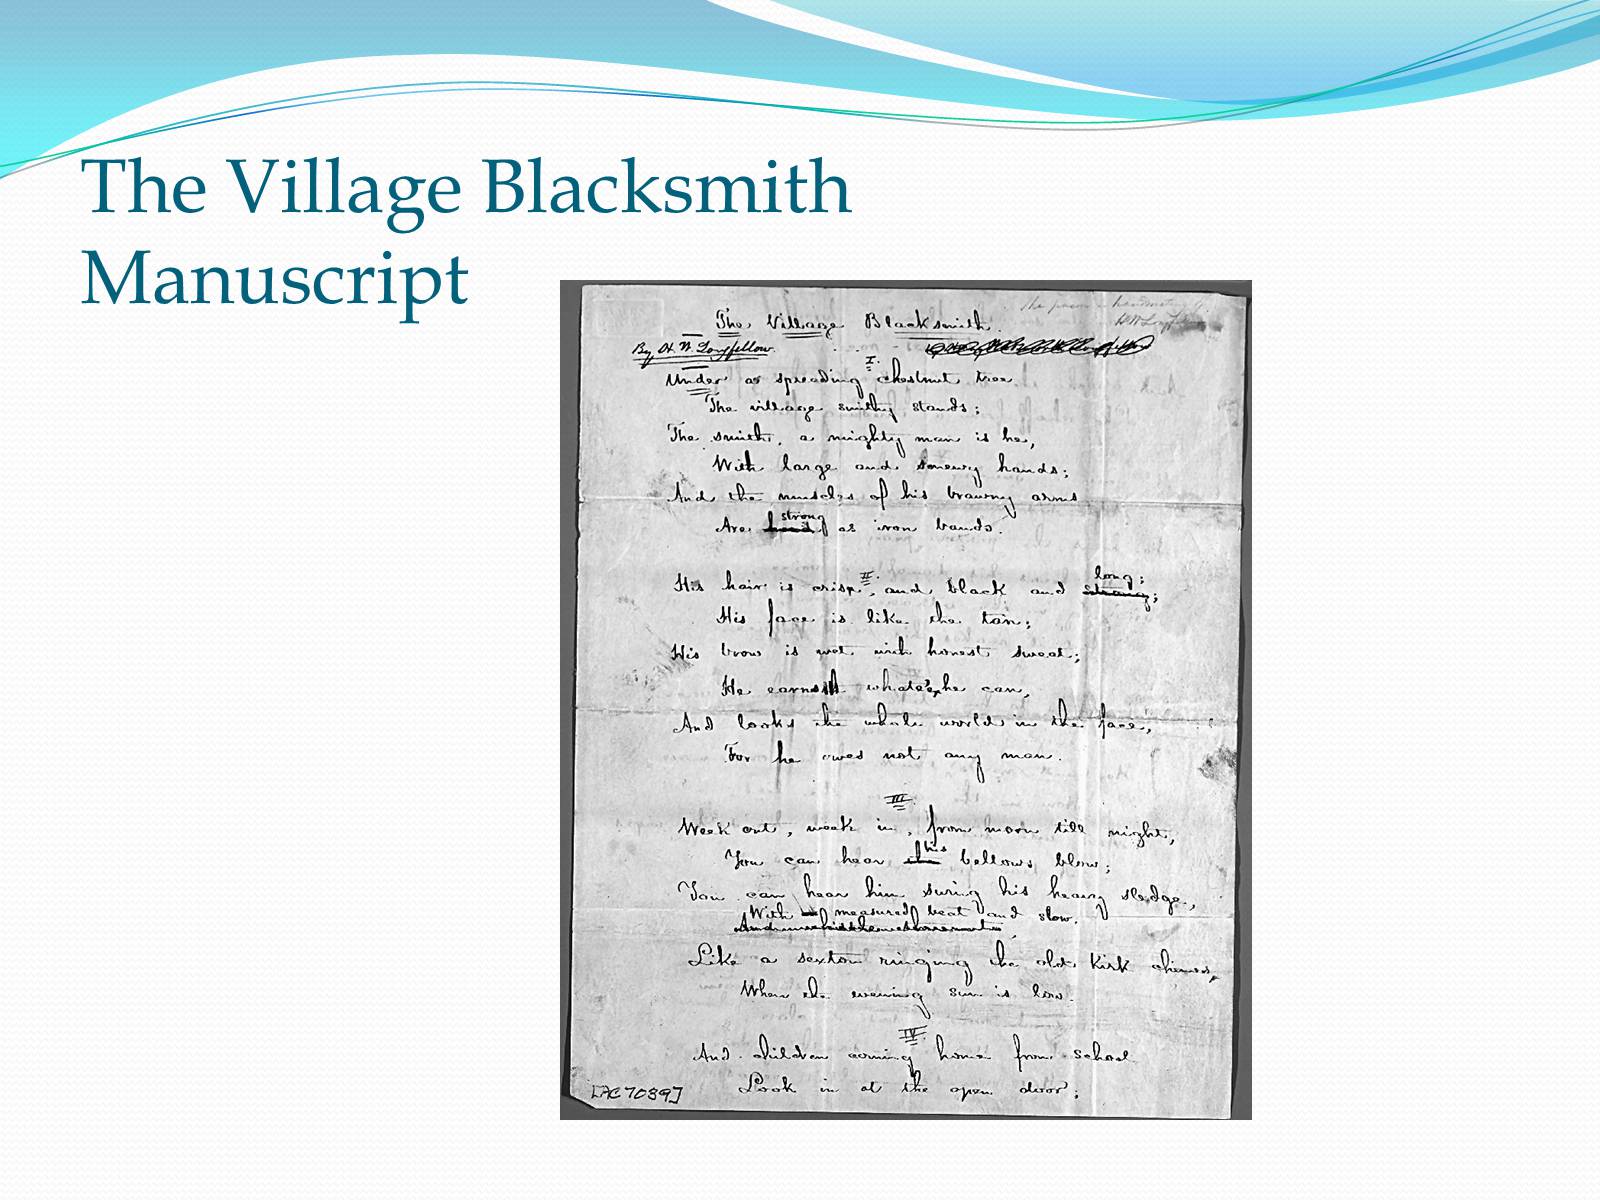 The Village Blacksmith
Manuscript
The poem in handwriting of
H W Longfellow
The Village Blacksmith.
By H. W. Longfellow.
I.
Under a spreading chestnut tree
The village smithy stands;
The smith, a mighty man is he,
With large and sinewy hands;
And the muscles of his brawny arms
strong
Are hard as iron bands.
II.
long;
His hair is crisp, and black and strong;
His face is like the tan;
His brow is wet with honest sweat;
He earns whate'er he can,
And looks the whole world in the face,
For he owes not any man.
III
Week out, week in, from morn till night,
his
You can hear the bellows blow;
You can hear him swing his heavy sledge,
With measured beat and slow,
Like a sexton ringing the old kirk chimes,
When the evening sun is low.
IV
And children coming home from school
Look in at the open door;
[AC7039]